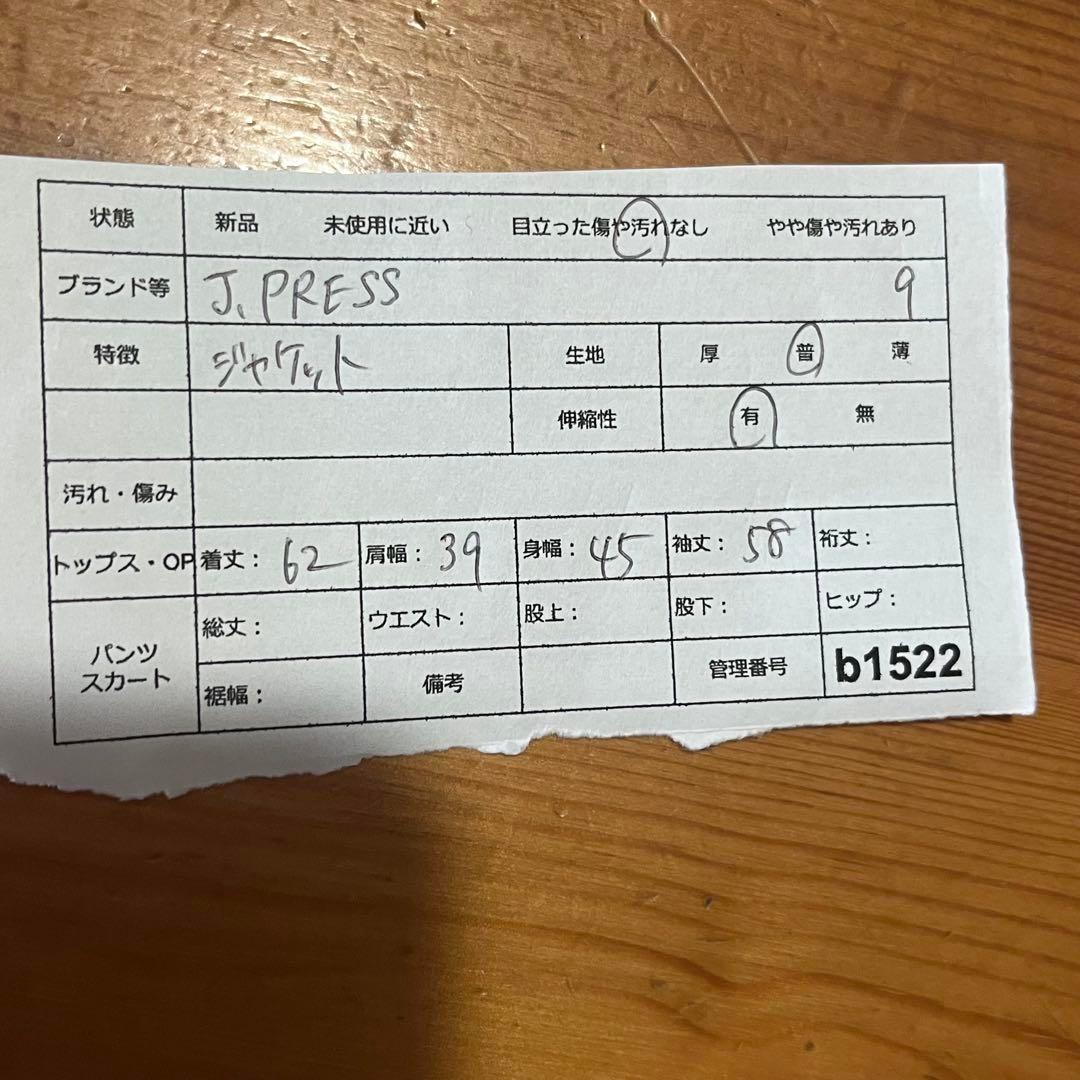 状態 新品 未使用に近い 目立った傷や汚れなし やや傷や汚れあり
ブランド等 J.PRESS 9
特徴 ジャケット 生地 厚 普 薄
伸縮性 有 無
汚れ・傷み
トップス・OP 着丈: 62 肩幅: 39 身幅: 45 袖丈: 58 裄丈:
パンツ スカート 総丈: ウエスト: 股上: 股下: ヒップ:
裾幅: 備考 管理番号 b1522